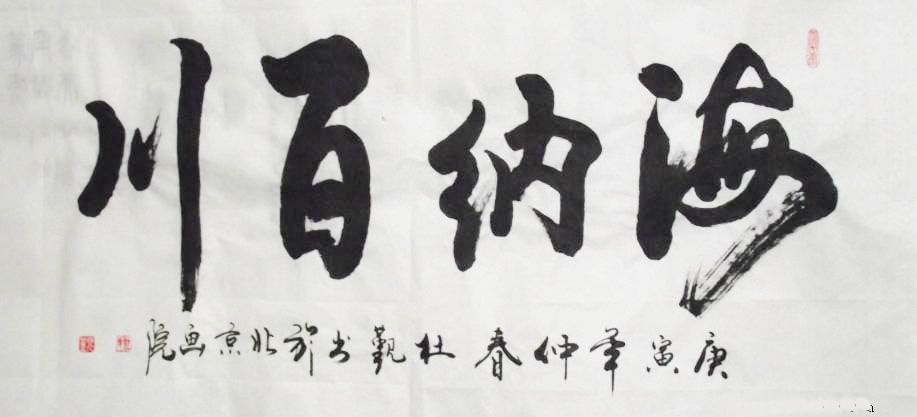 海纳百川
庚寅年仲春杜觐书於北京画院